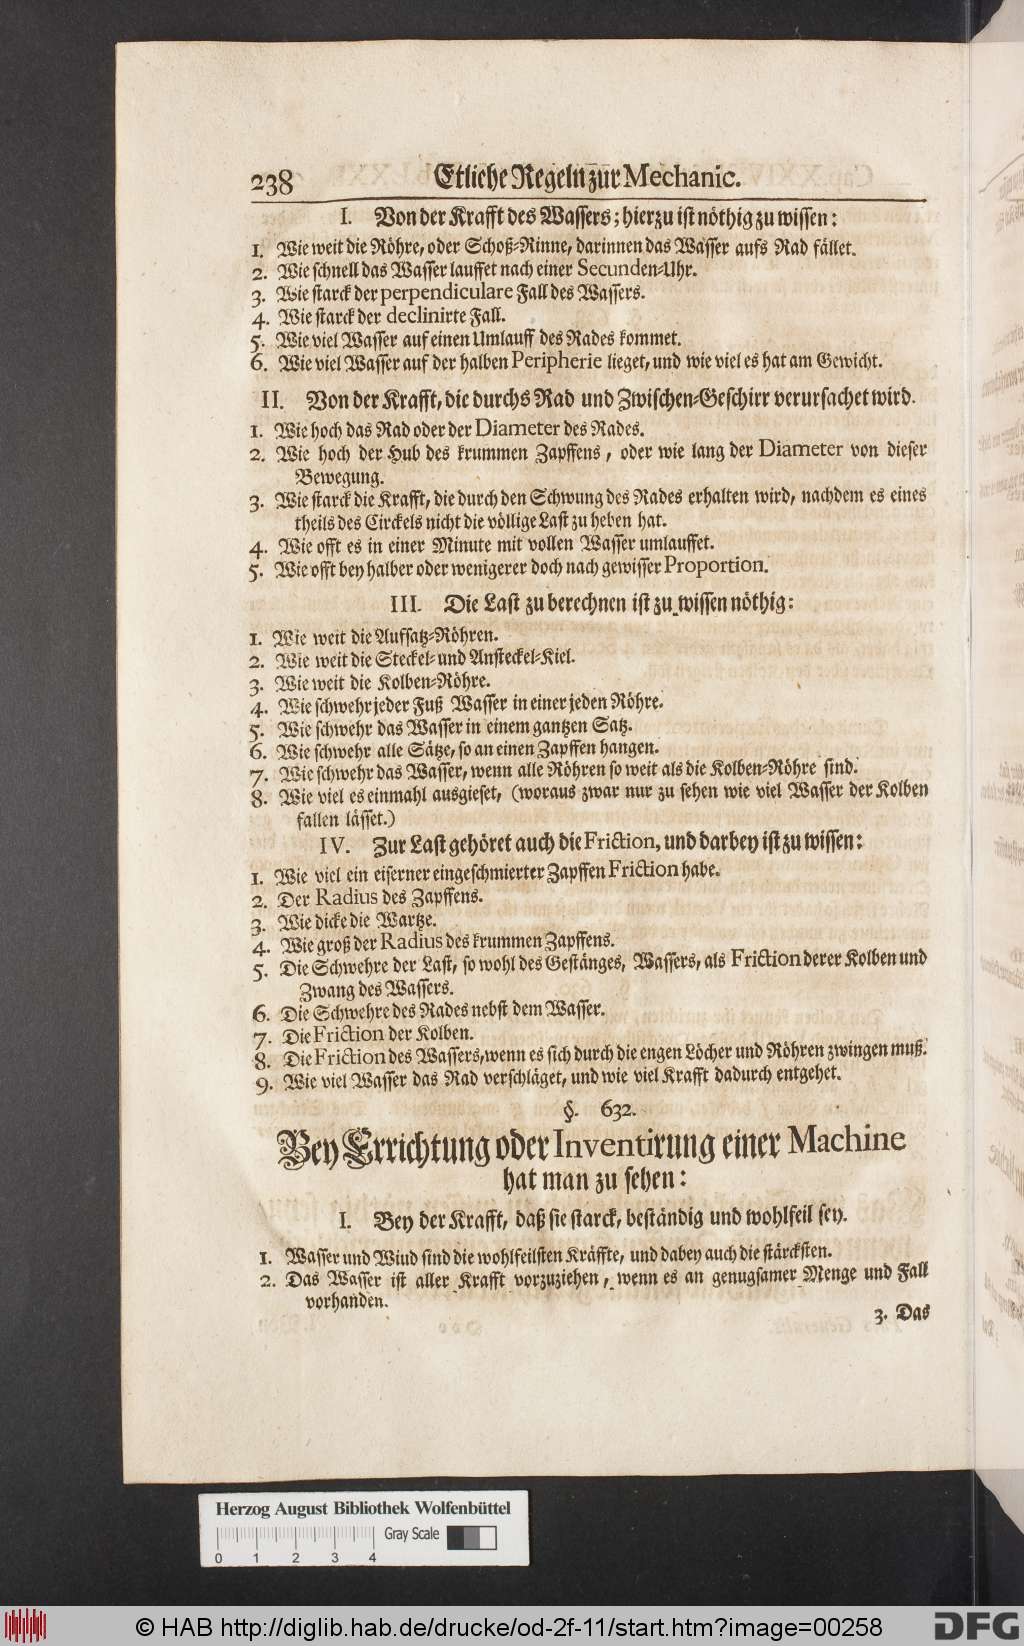 238 Etliche Regeln zur Mechanic.
I. Von der Krafft des Wassers; hierzu ist nöthig zu wissen:
1. Wie weit die Röhre, oder Schoß-Rinne, darinnen das Wasser aufs Rad fället.
2. Wie schnell das Wasser lauffet nach einer Secunden-Uhr.
3. Wie starck der perpendiculare Fall des Wassers.
4. Wie starck der declinirte Fall.
5. Wie viel Wasser auf einen Umlauff des Rades kommet.
6. Wie viel Wasser auf der halben Peripherie lieget, und wie viel es hat am Gewicht.
II. Von der Krafft, die durchs Rad und Zwischen-Geschirr verursachet wird.
1. Wie hoch das Rad oder der Diameter des Rades.
2. Wie hoch der Hub des krummen Zapffens, oder wie lang der Diameter von dieser
Bewegung.
3. Wie starck die Krafft, die durch den Schwung des Rades erhalten wird, nachdem es eines
theils des Circkels nicht die völlige Last zu heben hat.
4. Wie offt es in einer Minute mit vollen Wasser umlauffet.
5. Wie offt bey halber oder wenigerer doch nach gewisser Proportion.
III. Die Last zu berechnen ist zu wissen nöthig:
1. Wie weit die Aufsatz-Röhren.
2. Wie weit die Steckel- und Ansteckel-Kiel.
3. Wie weit die Kolben-Röhre.
4. Wie schwehr jeder Fuß Wasser in einer jeden Röhre.
5. Wie schwehr das Wasser in einem gantzen Satz.
6. Wie schwehr alle Sätze, so an einen Zapffen hangen.
7. Wie schwehr das Wasser, wenn alle Röhren so weit als die Kolben-Röhre sind.
8. Wie viel es einmahl ausgieset, (woraus zwar nur zu sehen wie viel Wasser der Kolben
fallen lässet.)
IV. Zur Last gehöret auch die Friction, und darbey ist zu wissen:
1. Wie viel ein eiserner eingeschmierter Zapffen Friction habe.
2. Der Radius des Zapffens.
3. Wie dicke die Wartze.
4. Wie groß der Radius des krummen Zapffens.
5. Die Schwehre der Last, so wohl des Gestänges, Wassers, als Friction derer Kolben und
Zwang des Wassers.
6. Die Schwehre des Rades nebst dem Wasser.
7. Die Friction der Kolben.
8. Die Friction des Wassers, wenn es sich durch die engen Löcher und Röhren zwingen muß.
9. Wie viel Wasser das Rad verschläget, und wie viel Krafft dadurch entgehet.
§. 632.
Bey Errichtung oder Inventirung einer Machine
hat man zu sehen:
I. Bey der Krafft, daß sie starck, beständig und wohlfeil sey.
1. Wasser und Wiud sind die wohlfeilsten Kräffte, und dabey auch die stärcksten.
2. Das Wasser ist aller Krafft vorzuziehen, wenn es an genugsamer Menge und Fall
vorhanden.
3. Das
Herzog August Bibliothek Wolfenbüttel
0 1 2 3 4 Gray Scale
© HAB http://diglib.hab.de/drucke/od-2f-11/start.htm?image=00258 DFG